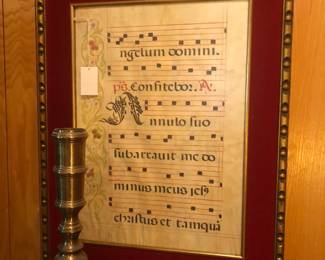 ngelum domini.
ps. Confitebor. A.
Annulo suo
subarravit me do
minus meus iesu
christus et tamquā